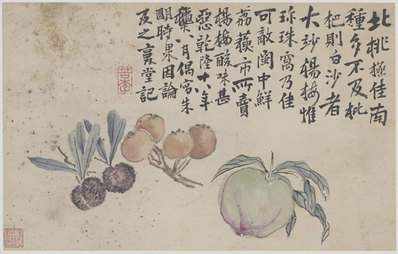 北桃極佳南
種多不及枇
杷則白沙者
大妙楊梅惟
珍珠窩乃佳
可敵閩中鮮
荔薐市所賣
楊梅酸味甚
惡乾隆十八年
八月偶寫朱
明時果因論
及之襄堂記